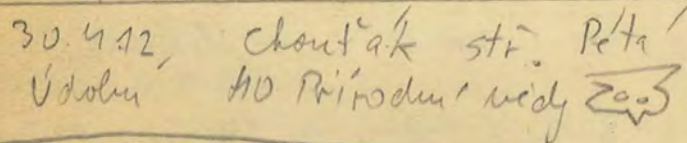 30.4.12, Chouťák stř. Pétá
Údobu AO Přírodní vědy